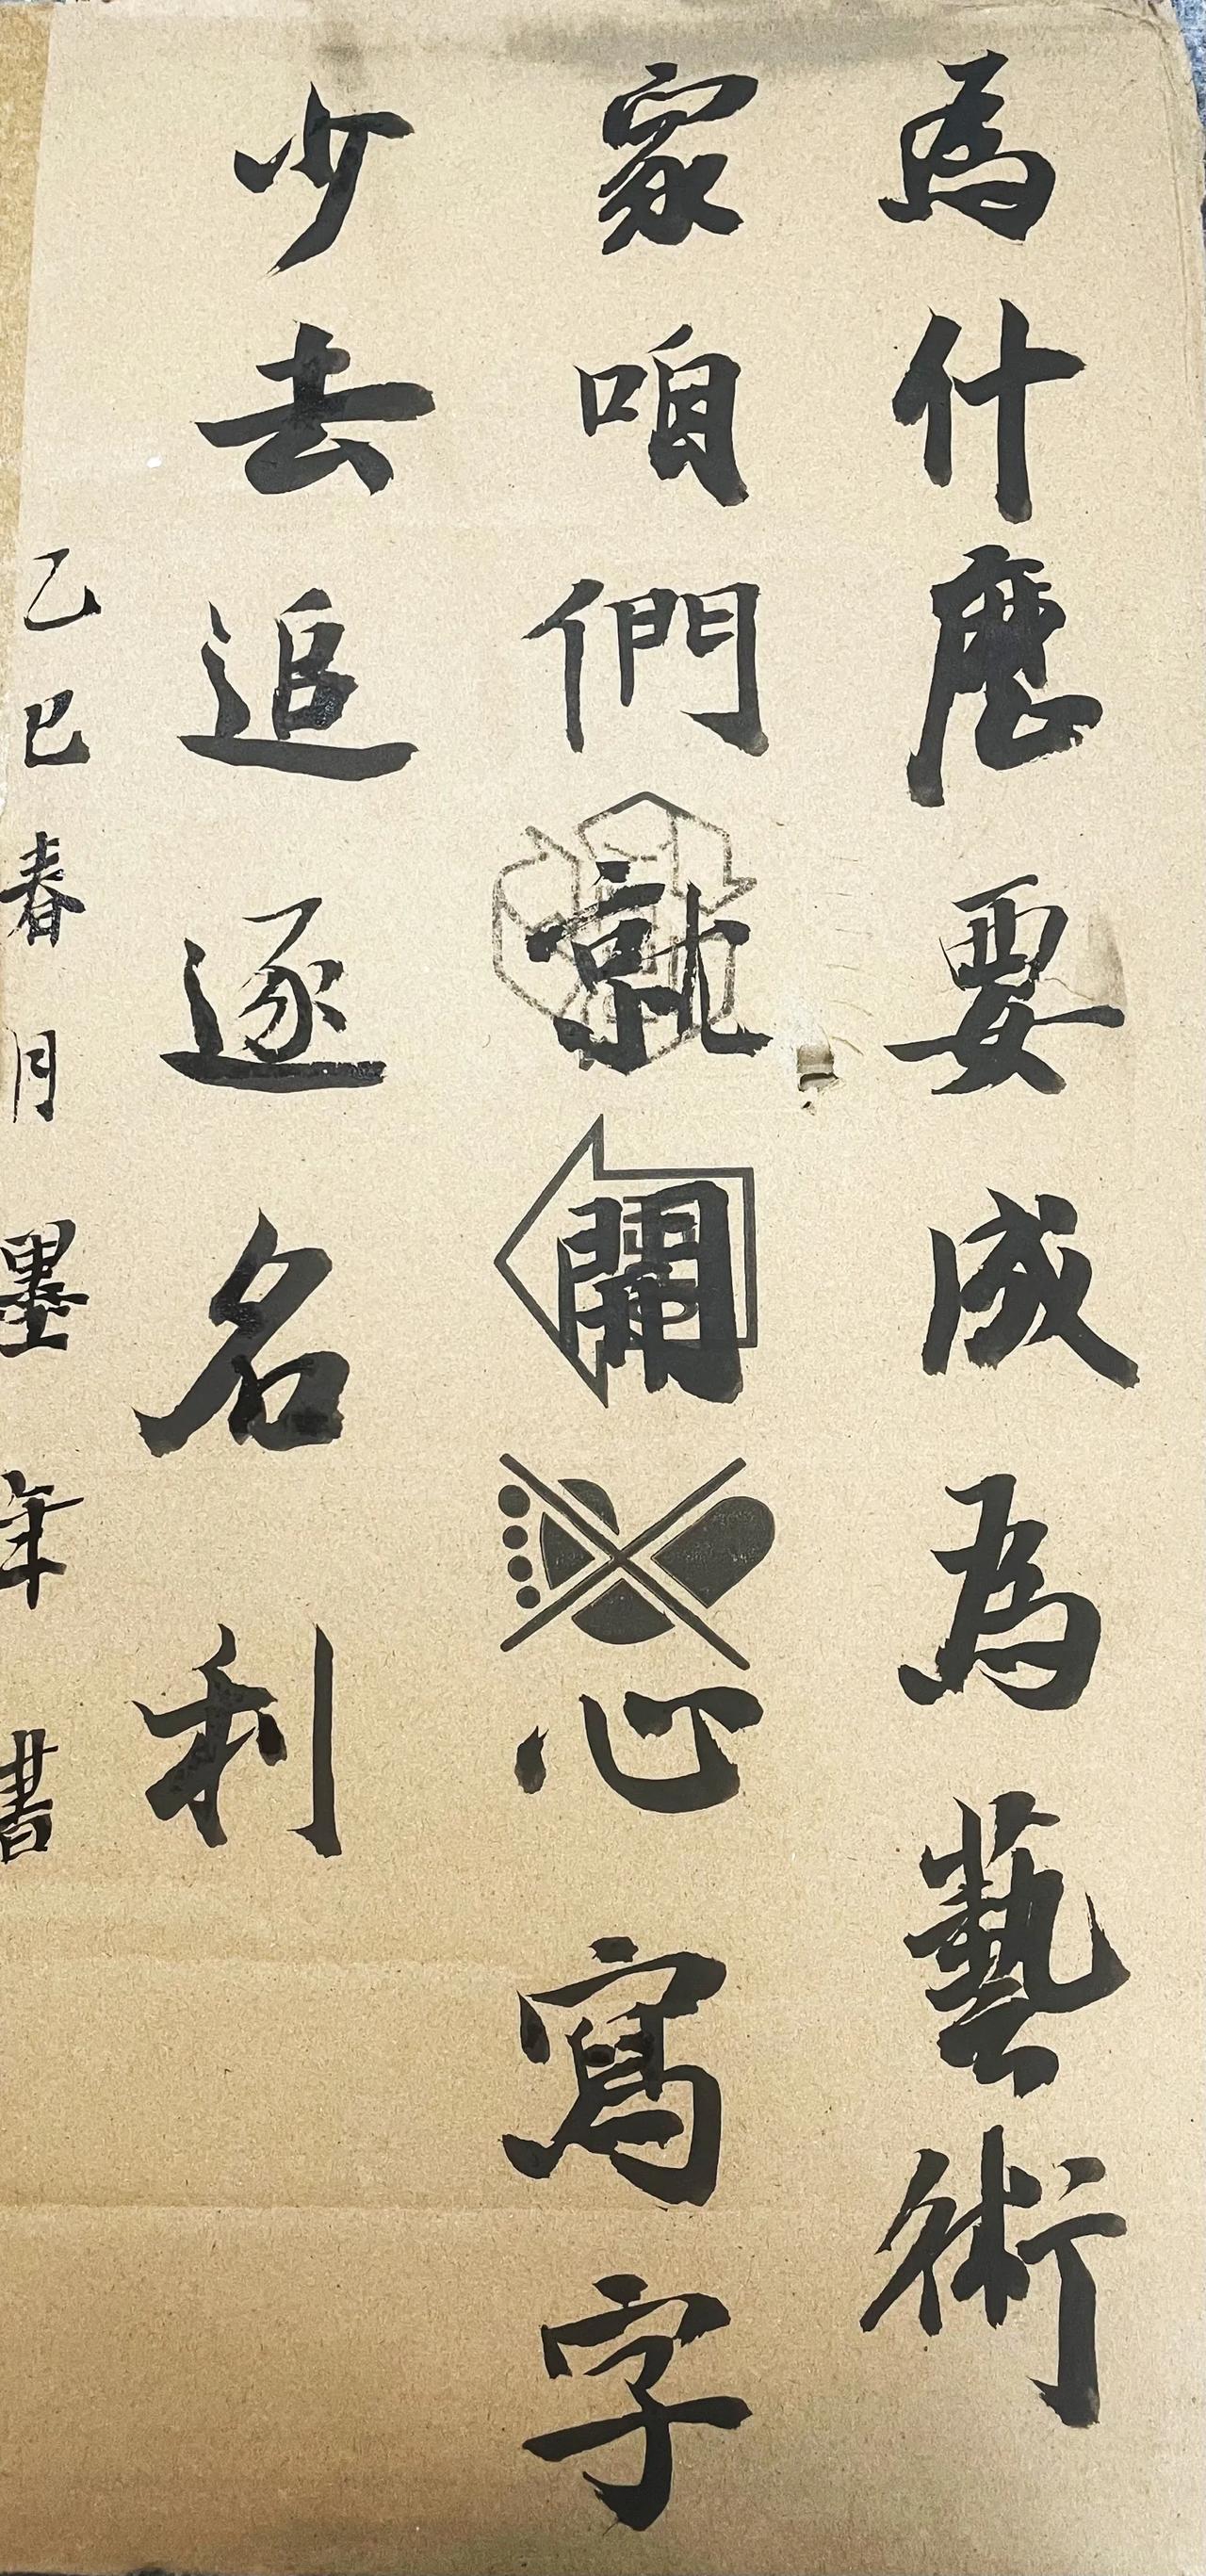 為什麼要成為藝術
家咱們就開心寫字
少去追逐名利
乙巳春月墨年書